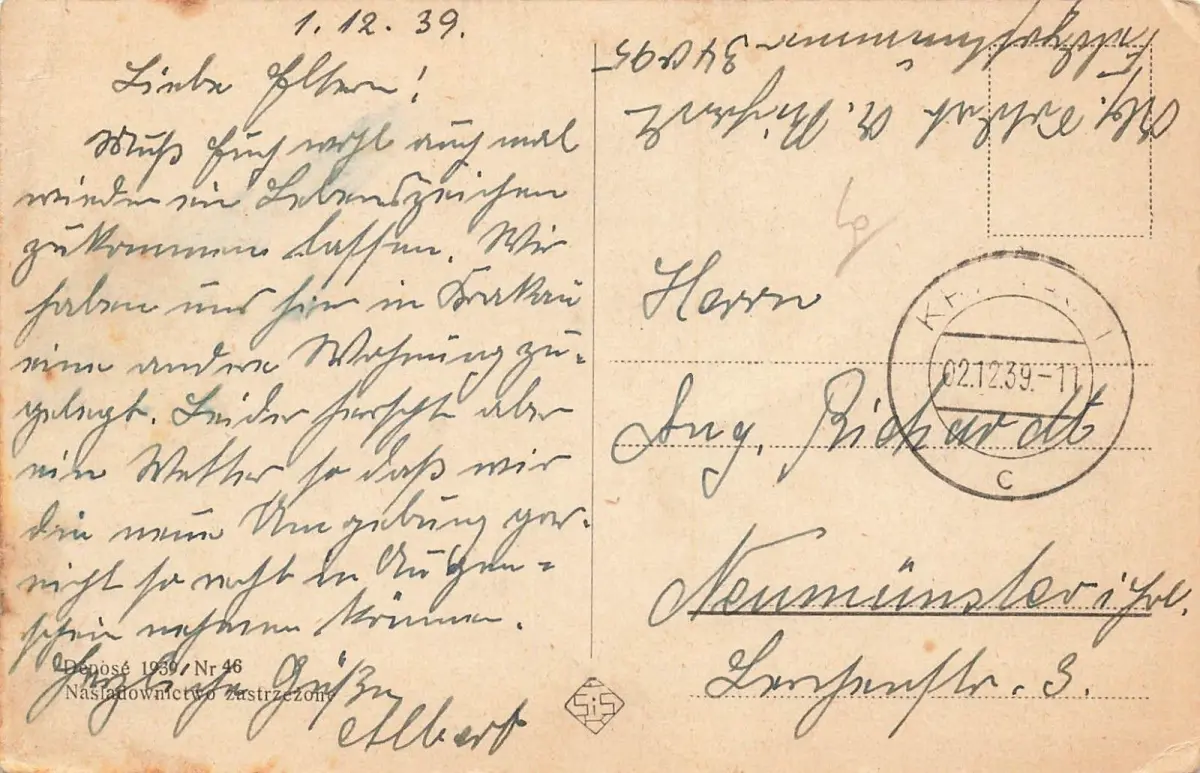 1.12.39.
Liebe Eltern!
Muß Euch wohl auch mal
wieder ein Lebenszeichen
zukommen lassen. Wir
haben uns hier in Krakau
eine andere Wohnung zu-
gelegt. Leider herrscht aber
ein Wetter so daß wir
die neue Umgebung gar-
nicht so recht in Augen-
schein nehmen können.
Herzliche Grüße
Albert
Déposé 1939 Nr 46
Naśladownictwo zastrzeżone
SiS
Abs. Soldat A. Richardt
Feldpostnummer
Herrn
Aug. Richardt
Neumünster i Hol.
Lerchenstr. 3.
02.12.39.-11
c